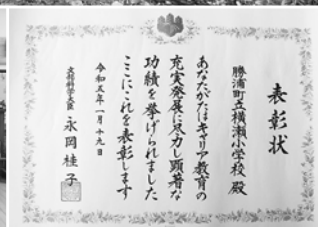 表彰状
勝浦町立横瀬小学校 殿
あなたがたはキャリア教育の
充実発展に尽力し顕著な
功績を挙げられました
ここにこれを表彰します
令和五年一月十九日
文部科学大臣 永岡桂子